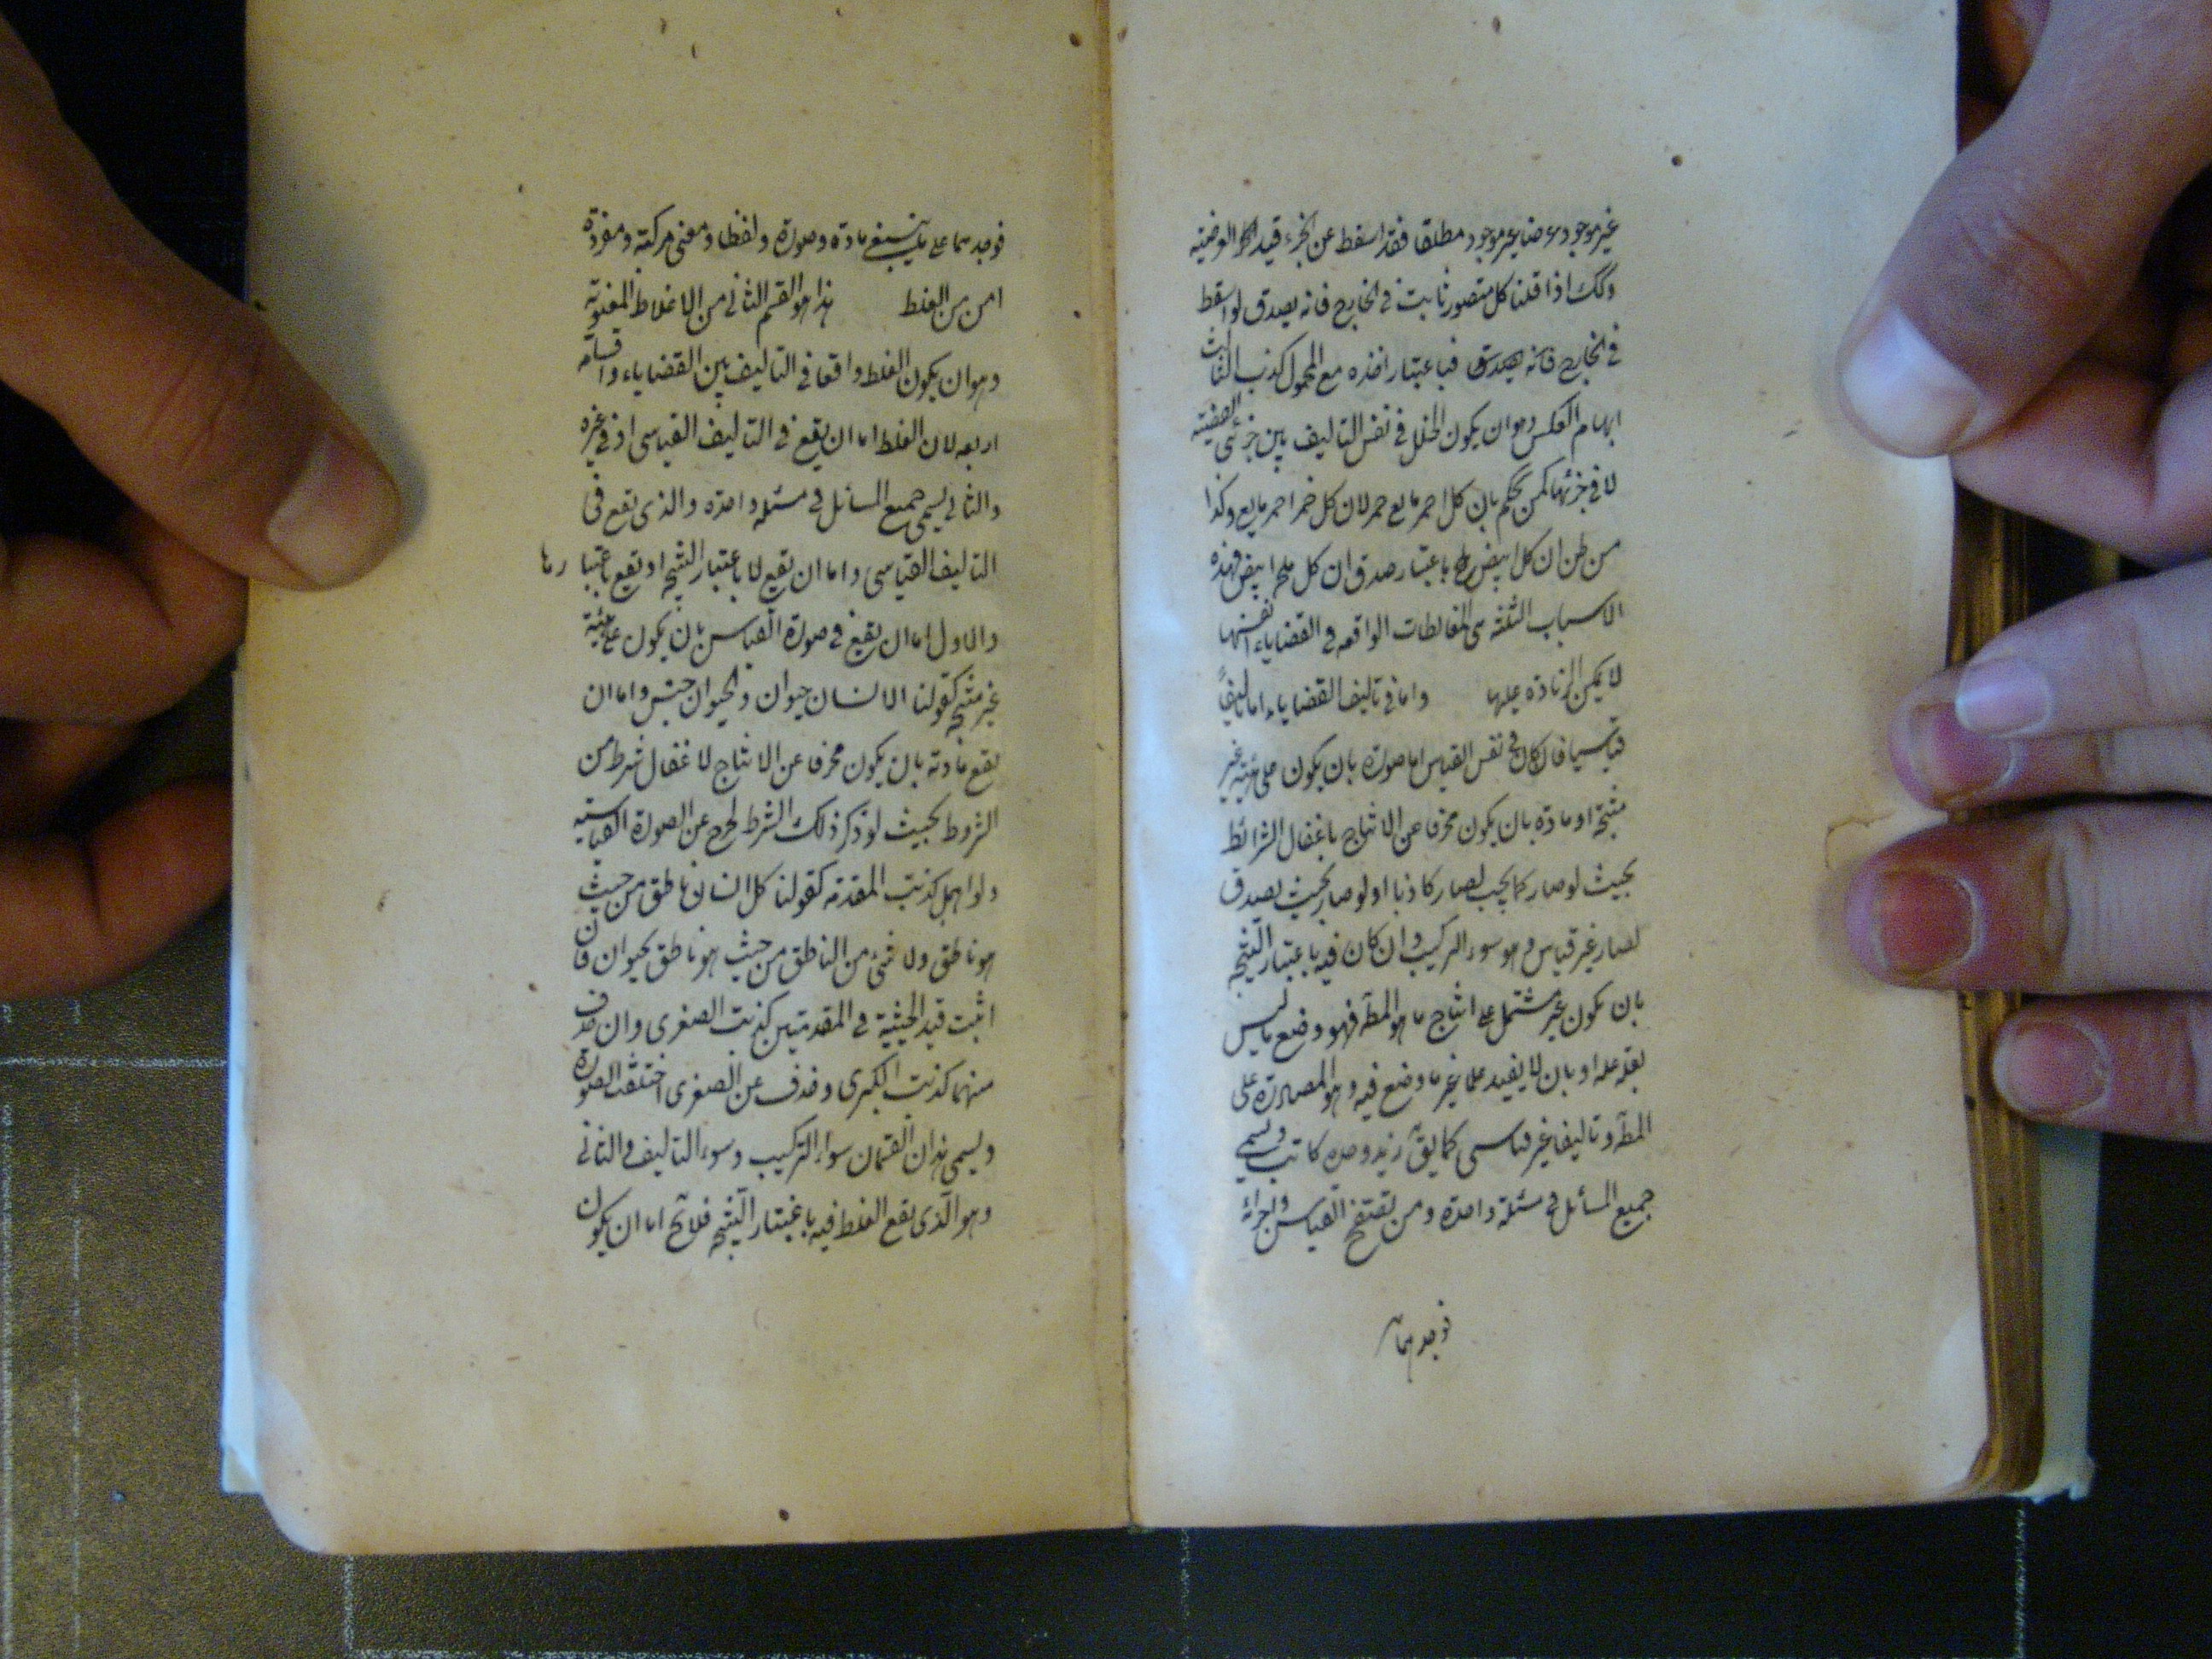 غير موجود عرضا غير موجود مطلقا فقد اسقط عن الجزء قيد
وكك اذا قلنا كل متصور ثابت فى الخارج فانه يصدق لو اسقط
فى الخارج فانه يصدق فباعتبار اخذه مع المحمول كذب الثالث
ايهام العكس وهو ان يكون الخلل فى نفس التاليف بين جزئى القضية
لا فى جزئها كمن يحكم بان كل احمر مايع خمر لان كل خمر احمر مايع وكذا
من ظن ان كل ابيض ملح باعتبار صدق ان كل ملح ابيض فهذه
الاسباب الثلثه هى المغالطات الواقعه فى القضاياء انفسها
لا يمكن الزيادة عليها واما فى تاليف القضاياء اما تاليفاً
قياسيا فان كان فى نفس القياس اما صورة بان يكون على هيئة غير
منتجة او مادة بان يكون محرفا عن الانتاج باغفال الشرائط
بحيث لو صار كما يجب لصار كاذبا او لو صار بحيث يصدق
لصار غير قياس وهو سوء التركيب وان كان فيه باعتبار النتيجه
بان يكون غير مشتمل على انتاج ما هو المط فهو وضع ما ليس
بعلة علة او بان لا يفيد علما غير ما وضع فيه وهو المصادرة على
المط وتاليفا غير قياسى كما يق زيد وحده كاتب ويسمى
جميع المسائل فى مسئلة واحدة ومن تفحص القياس واجزائه
فوجدهما
فوجدهما على ما ينبغى مادة وصورة ولفظا ومعنى مركبة ومفردة
امن من الغلط هذا هو القسم الثانى من الاغلاط المعنوية
وهو ان يكون الغلط واقعا فى التاليف بين القضاياء واقسامه
اربعه لان الغلط اما ان يقع فى التاليف القياسى او فى غيره
والثانى يسمى جميع المسائل فى مسئلة واحده والذى يقع فى
التاليف القياسى واما ان يقع لا باعتبار النتيجه او يقع باعتبارها
والاول اما ان يقع فى صورة القياس بان يكون على هيئة
غير منتجه كقولنا الانسان حيوان والحيوان جنس واما ان
يقع مادته بان يكون محرفا عن الانتاج لاغفال شرط من
الشروط بحيث لو ذكر ذلك الشرط لخرج عن الصورة القياسية
ولو اهمل كذبت المقدمه كقولنا كل انسان ناطق من حيث
هو ناطق ولا شئ من الناطق من حيث هو ناطق بحيوان فان
اثبت قيد الحيثية فى المقدمتين كذبت الصغرى وان حذف
منهما كذبت الكبرى وحذف عن الصغرى اختلفت الصورة
ويسمى هذان القسمان سواء التركيب وسوء التاليف والثانى
وهو الذى يقع الغلط فيه باعتبار النتيجه فلا يخ اما ان يكون